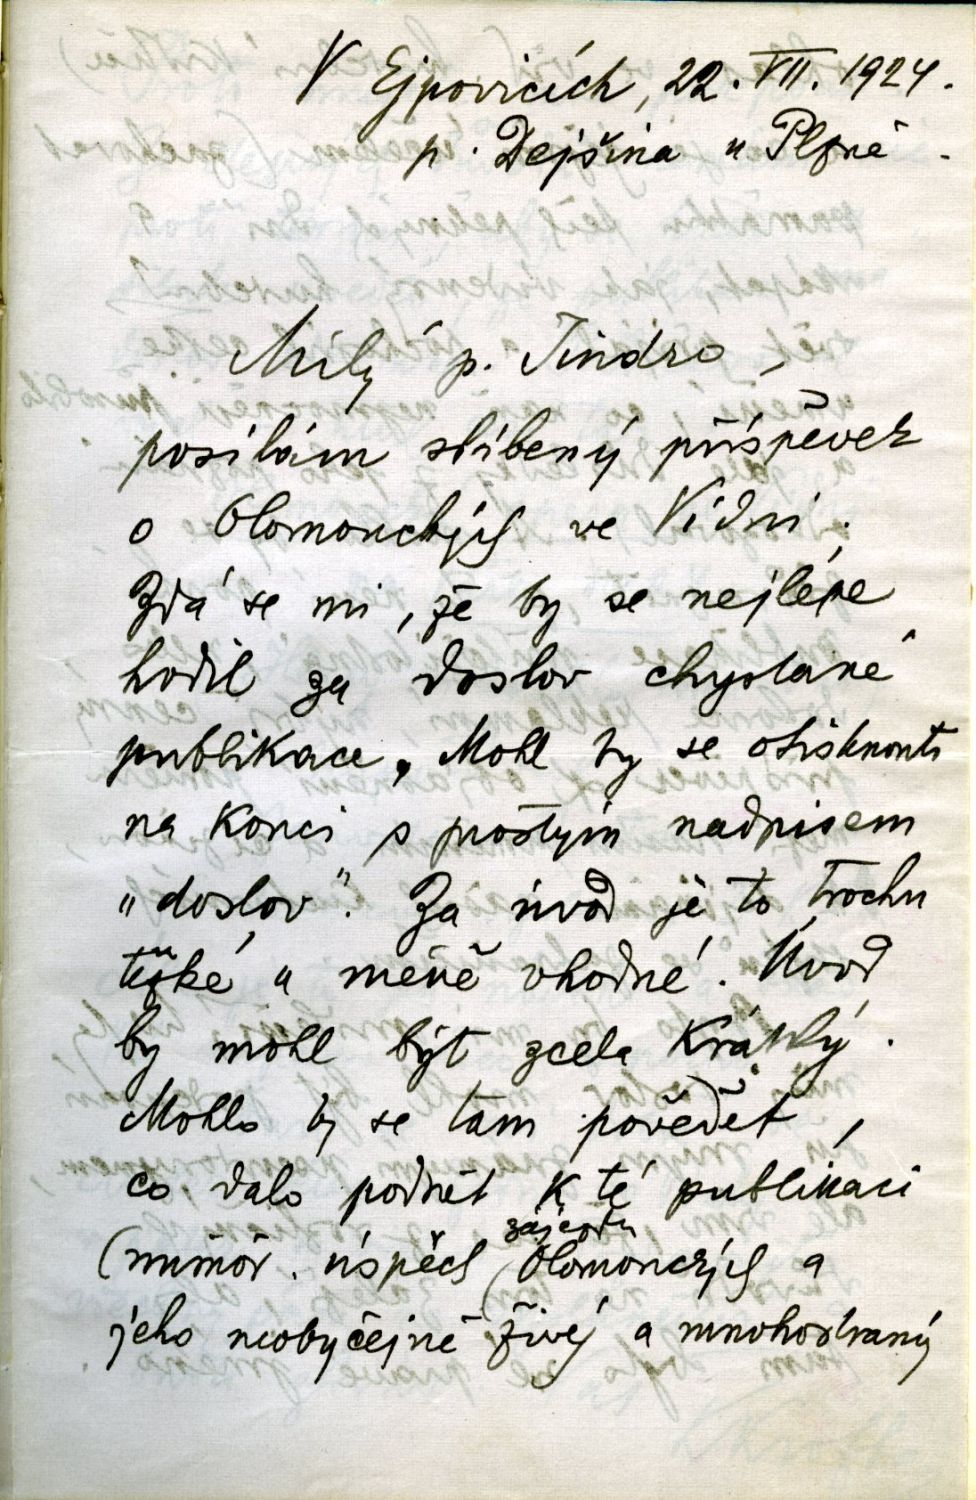 V Ejpovicích, 22. VII. 1924.
p. Dejšina u Plzně.
Milý p. Jindro,
posílám slíbený příspěvek
o Olomouckých ve Vídni.
Zdá se mi, že by se nejlépe
hodil za doslov chystané
publikace. Mohl by se otisknouti
na konci s prostým nadpisem
„doslov". Za úvod je to trochu
těžké a méně vhodné. Úvod
by mohl být zcela krátký.
Mohlo by se tam povědět,
co dalo podnět k té publikaci
(mimoř. úspěch zájezdu Olomouckých a
jeho neobyčejně živý a mnohostranný